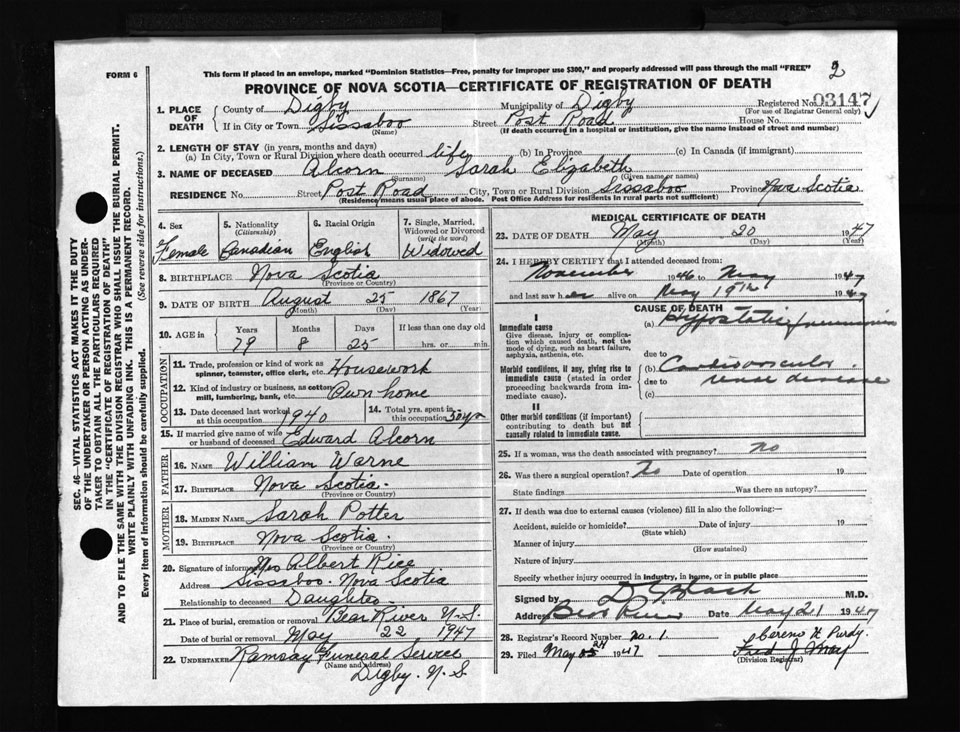 2
FORM 6
This form if placed in an envelope, marked "Dominion Statistics—Free, penalty for improper use $300," and properly addressed will pass through the mail "FREE"
PROVINCE OF NOVA SCOTIA—CERTIFICATE OF REGISTRATION OF DEATH
SEC. 46—VITAL STATISTICS ACT MAKES IT THE DUTY
OF THE UNDERTAKER OR PERSON ACTING AS UNDER-
TAKER TO OBTAIN ALL THE PARTICULARS REQUIRED
IN THE "CERTIFICATE OF REGISTRATION OF DEATH"
AND TO FILE THE SAME WITH THE DIVISION REGISTRAR WHO SHALL ISSUE THE BURIAL PERMIT.
WRITE PLAINLY WITH UNFADING INK. THIS IS A PERMANENT RECORD.
Every item of information should be carefully supplied. (See reverse side for instructions.)
1. PLACE OF DEATH County of Digby Municipality of Digby Registered No. 03147
(For use of Registrar General only)
If in City or Town Sissaboo Street Post Road House No.
(Name) (If death occurred in a hospital or institution, give the name instead of street and number)
2. LENGTH OF STAY (in years, months and days)
(a) In City, Town or Rural Division where death occurred life (b) In Province (c) In Canada (if immigrant)
3. NAME OF DECEASED Alcorn Sarah Elizabeth
(Surname) (Given name or names)
RESIDENCE No. Street Post Road City, Town or Rural Division Sissaboo Province Nova Scotia
(Residence means usual place of abode. Post Office Address for residents in rural parts not sufficient)
4. Sex Female
5. Nationality (Citizenship) Canadian
6. Racial Origin English
7. Single, Married, Widowed or Divorced (write the word) Widowed
8. BIRTHPLACE Nova Scotia
(Province or Country)
9. DATE OF BIRTH August 25 1867
(Month) (Day) (Year)
10. AGE in Years Months Days If less than one day old
79 8 25 hrs. or min.
OCCUPATION
11. Trade, profession or kind of work as spinner, teamster, office clerk, etc. Housework
12. Kind of industry or business, as cotton mill, lumbering, bank, etc. Own home
13. Date deceased last worked at this occupation 1940
14. Total yrs. spent in this occupation 50 yrs
15. If married give name of wife or husband of deceased Edward Alcorn
FATHER
16. NAME William Warne
17. BIRTHPLACE Nova Scotia.
(Province or Country)
MOTHER
18. MAIDEN NAME Sarah Potter
19. BIRTHPLACE Nova Scotia.
(Province or Country)
20. Signature of informant Mrs Albert Rice
Address Sissaboo. Nova Scotia
Relationship to deceased Daughter
21. Place of burial, cremation or removal Bear River N.S.
Date of burial or removal May 22 1947
22. UNDERTAKER Ramsay Funeral Service
(Name and address)
Digby. N.S
MEDICAL CERTIFICATE OF DEATH
23. DATE OF DEATH May 20 1947
(Month) (Day) (Year)
24. I HEREBY CERTIFY that I attended deceased from:
November 1946 to May 1947
and last saw her alive on May 19th 1947
CAUSE OF DEATH
I
Immediate cause
Give disease, injury or complication which caused death, not the mode of dying, such as heart failure, asphyxia, asthenia, etc.
(a) Hypostatic pneumonia
due to
Morbid conditions, if any, giving rise to immediate cause (stated in order proceeding backwards from immediate cause).
(b) Cardiovascular
due to renal disease
(c)
II
Other morbid conditions (if important) contributing to death but not causally related to immediate cause.
25. If a woman, was the death associated with pregnancy? no
26. Was there a surgical operation? No Date of operation 19
State findings Was there an autopsy?
27. If death was due to external causes (violence) fill in also the following:—
Accident, suicide or homicide? Date of injury 19
(State which)
Manner of injury
(How sustained)
Nature of injury
Specify whether injury occurred in industry, in home, or in public place
Signed by M.D.
Address Bear River Date May 21 1947
28. Registrar's Record Number No. 1
Cereno H Purdy.
29. Filed May 24 1947 Fred J. May
(Division Registrar)